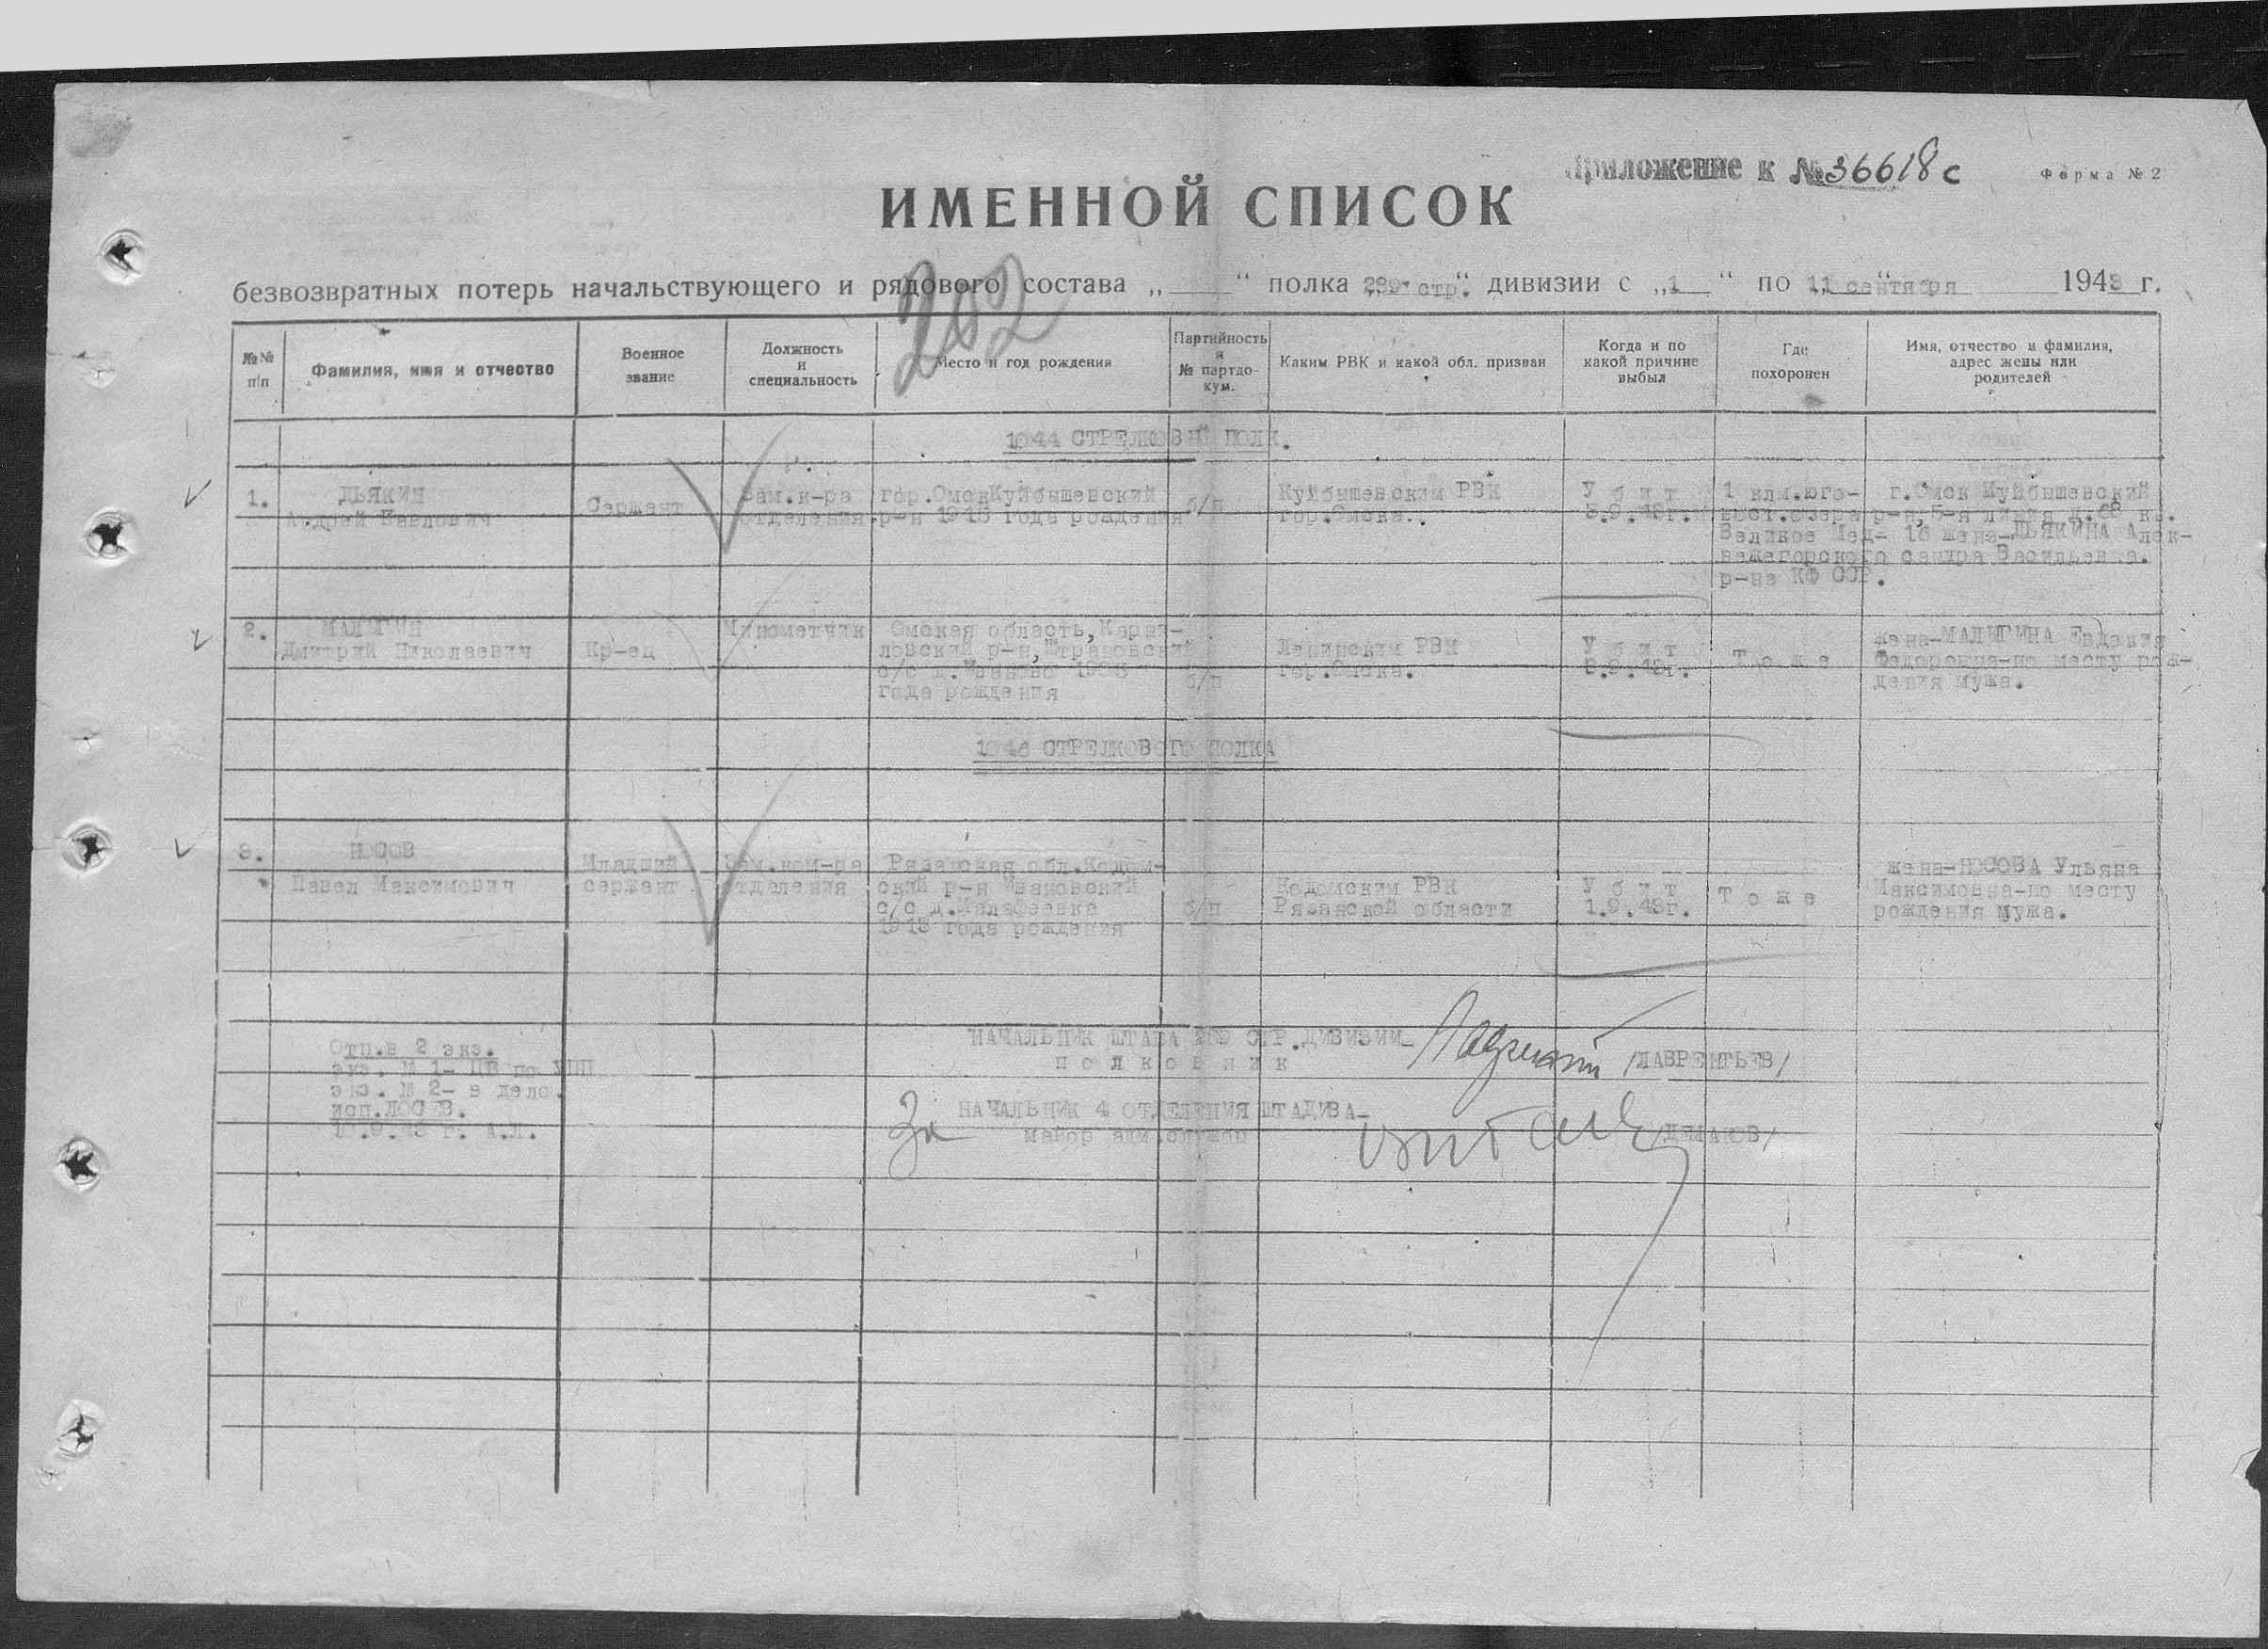 Приложение к №36618с
Форма №2
ИМЕННОЙ СПИСОК
безвозвратных потерь начальствующего и рядового состава „ “ полка „289 стр.“ дивизии с „1 “ по „11 сентября 1943 г.
202
№№ п/п
Фамилия, имя и отчество
Военное звание
Должность и специальность
Место и год рождения
Партийность и № партдокум.
Каким РВК и какой обл. призван
Когда и по какой причине выбыл
Где похоронен
Имя, отчество и фамилия, адрес жены или родителей
1044 СТРЕЛКОВЫЙ ПОЛК.
1.
ДЬЯКИН
Андрей Павлович
Сержант
Зам.к-ра
отделения
гор.Омск Куйбышевский
р-н 1915 года рождения
б/п
Куйбышевским РВК
гор.Омска.
У б и т
г.
1 клм.юго-
вост.озера
Великое Мед-
вежегорского
р-на КФ ССР.
г.Омск Куйбышевский
р-н, 5-я линия д. кв.
18 жена-ДЬЯКИНА Алек-
сандра Васильевна.
2.
МАЛЫГИН
Дмитрий Николаевич
Кр-ец
Минометчик
Омская область,
р-н,
с/с д.
года рождения
б/п
Ленинским РВК
гор.Омска.
У б и т
.9.43г.
Т о ж е
жена-МАЛЫГИНА Евдокия
Федоровна-по месту рож-
дения мужа.
1046 СТРЕЛКОВОГО ПОЛКА
3.
НОСОВ
Павел Максимович
Младший
сержант
Зам.ком-ра
отделения
Рязанская обл.Кадом-
ский р-н Ивановский
с/с д.Малафеевка
1913 года рождения
б/п
Кадомским РВК
Рязанской области
У б и т
1.9.43г.
Т о ж е
жена-НОСОВА Ульяна
Максимовна-по месту
рождения мужа.
НАЧАЛЬНИК ШТАБА 289 СТР.ДИВИЗИИ-
П О Л К О В Н И К
/ЛАВРЕНТЬЕВ/
Отп.в 2 экз.
экз. № 1- ЦБ по
экз. № 2- в дело.
исп.ЛОСЕВ.
.9.43 г. А.Л.
За
НАЧАЛЬНИК 4 ОТДЕЛЕНИЯ ШТАДИВА-
майор адм.службы